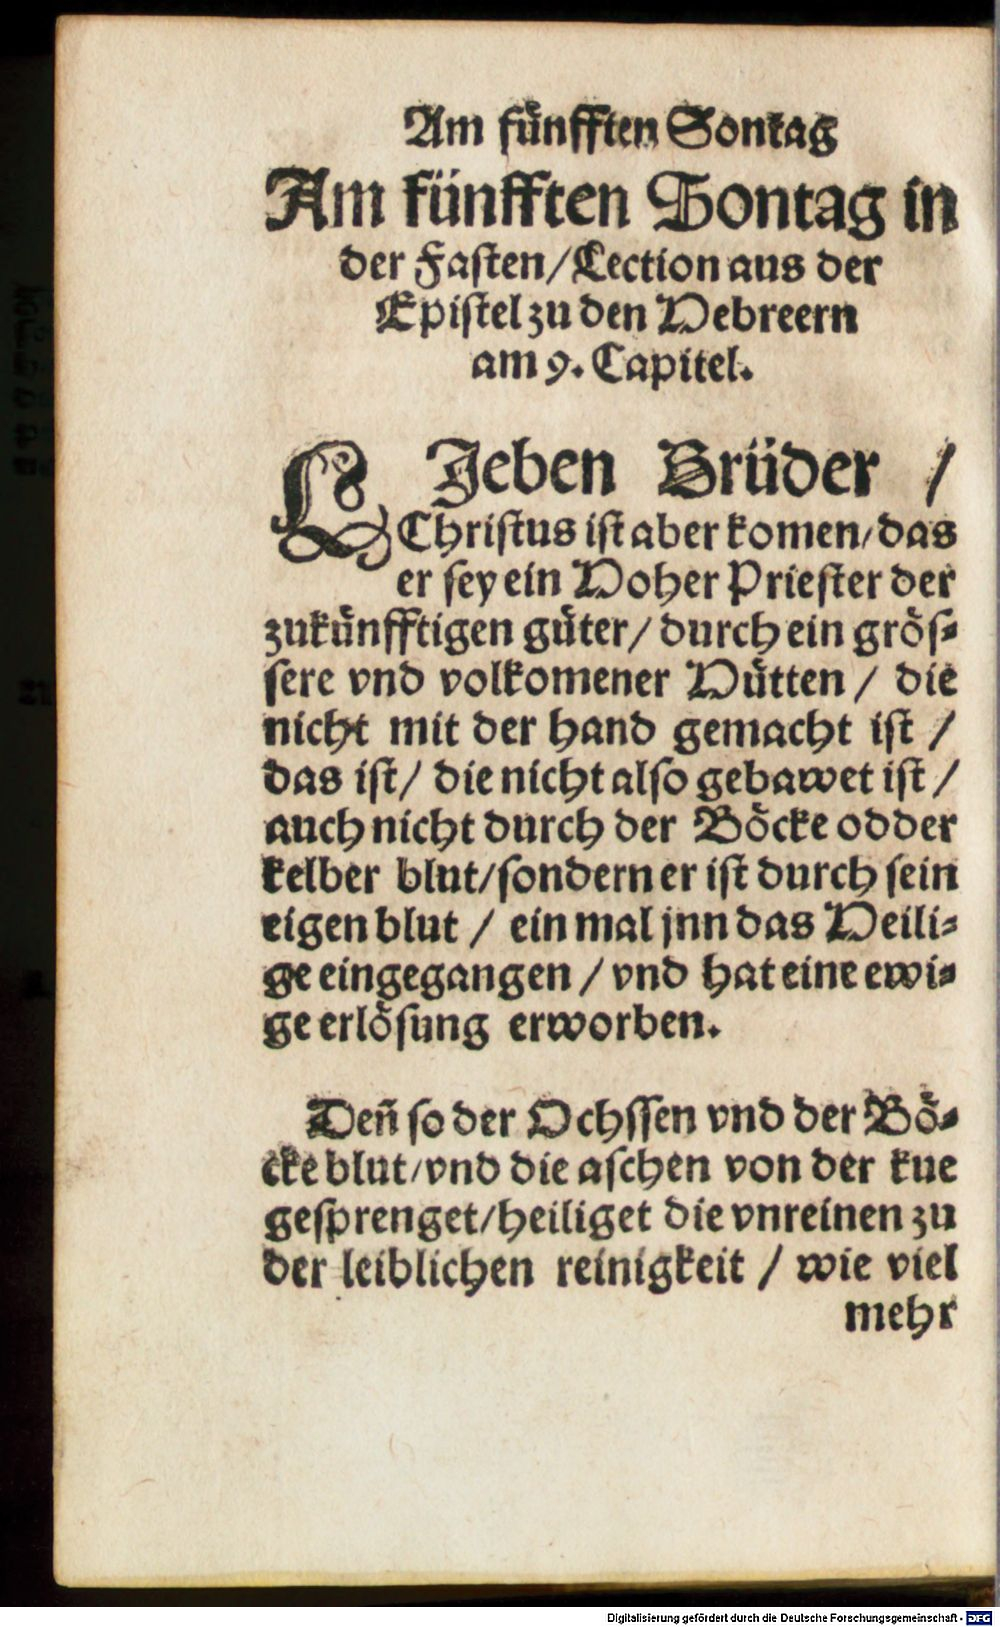 Am fünfften Sontag
Am fünfften Sontag in
der Fasten/Lection aus der
Epistel zu den Hebreern
am 9. Capitel.
LJeben Brüder /
Christus ist aber komen/das
er sey ein Hoher Priester der
zukünfftigen güter/ durch ein grös-
sere vnd volkomener Hütten / die
nicht mit der hand gemacht ist /
das ist/ die nicht also gebawet ist /
auch nicht durch der Böcke odder
kelber blut/sondern er ist durch sein
eigen blut / ein mal jnn das Heili-
ge eingegangen / vnd hat eine ewi-
ge erlösung erworben.
Deñ so der Ochssen vnd der Bö-
cke blut/vnd die aschen von der kue
gesprenget/heiliget die vnreinen zu
der leiblichen reinigkeit / wie viel
mehr
Digitalisierung gefördert durch die Deutsche Forschungsgemeinschaft - DFG